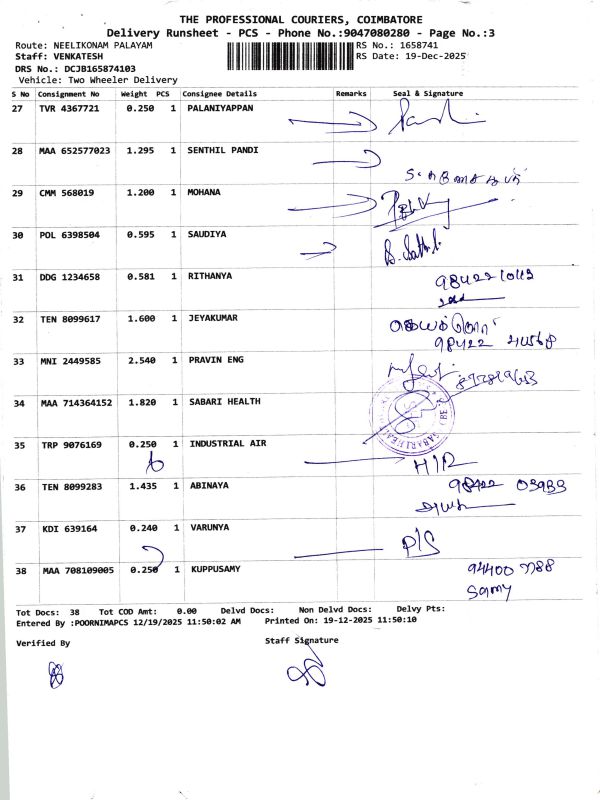 THE PROFESSIONAL COURIERS, COIMBATORE
Delivery Runsheet - PCS - Phone No.:9047080280 - Page No.:3
Route: NEELIKONAM PALAYAM RS No.: 1658741
Staff: VENKATESH RS Date: 19-Dec-2025
DRS No.: DCJB165874103
Vehicle: Two Wheeler Delivery
S No Consignment No Weight PCS Consignee Details Remarks Seal & Signature
27 TVR 4367721 0.250 1 PALANIYAPPAN
28 MAA 652577023 1.295 1 SENTHIL PANDI
29 CMM 568019 1.200 1 MOHANA
30 POL 6398504 0.595 1 SAUDIYA
31 DDG 1234658 0.581 1 RITHANYA
32 TEN 8099617 1.600 1 JEYAKUMAR
33 MNI 2449585 2.540 1 PRAVIN ENG
34 MAA 714364152 1.820 1 SABARI HEALTH
35 TRP 9076169 0.250 1 INDUSTRIAL AIR
H/R
36 TEN 8099283 1.435 1 ABINAYA 98422 03933
37 KDI 639164 0.240 1 VARUNYA
P/S
38 MAA 708109005 0.250 1 KUPPUSAMY
Samy
Tot Docs: 38 Tot COD Amt: 0.00 Delvd Docs: Non Delvd Docs: Delvy Pts:
Entered By :POORNIMAPCS 12/19/2025 11:50:02 AM Printed On: 19-12-2025 11:50:10
Verified By Staff Signature